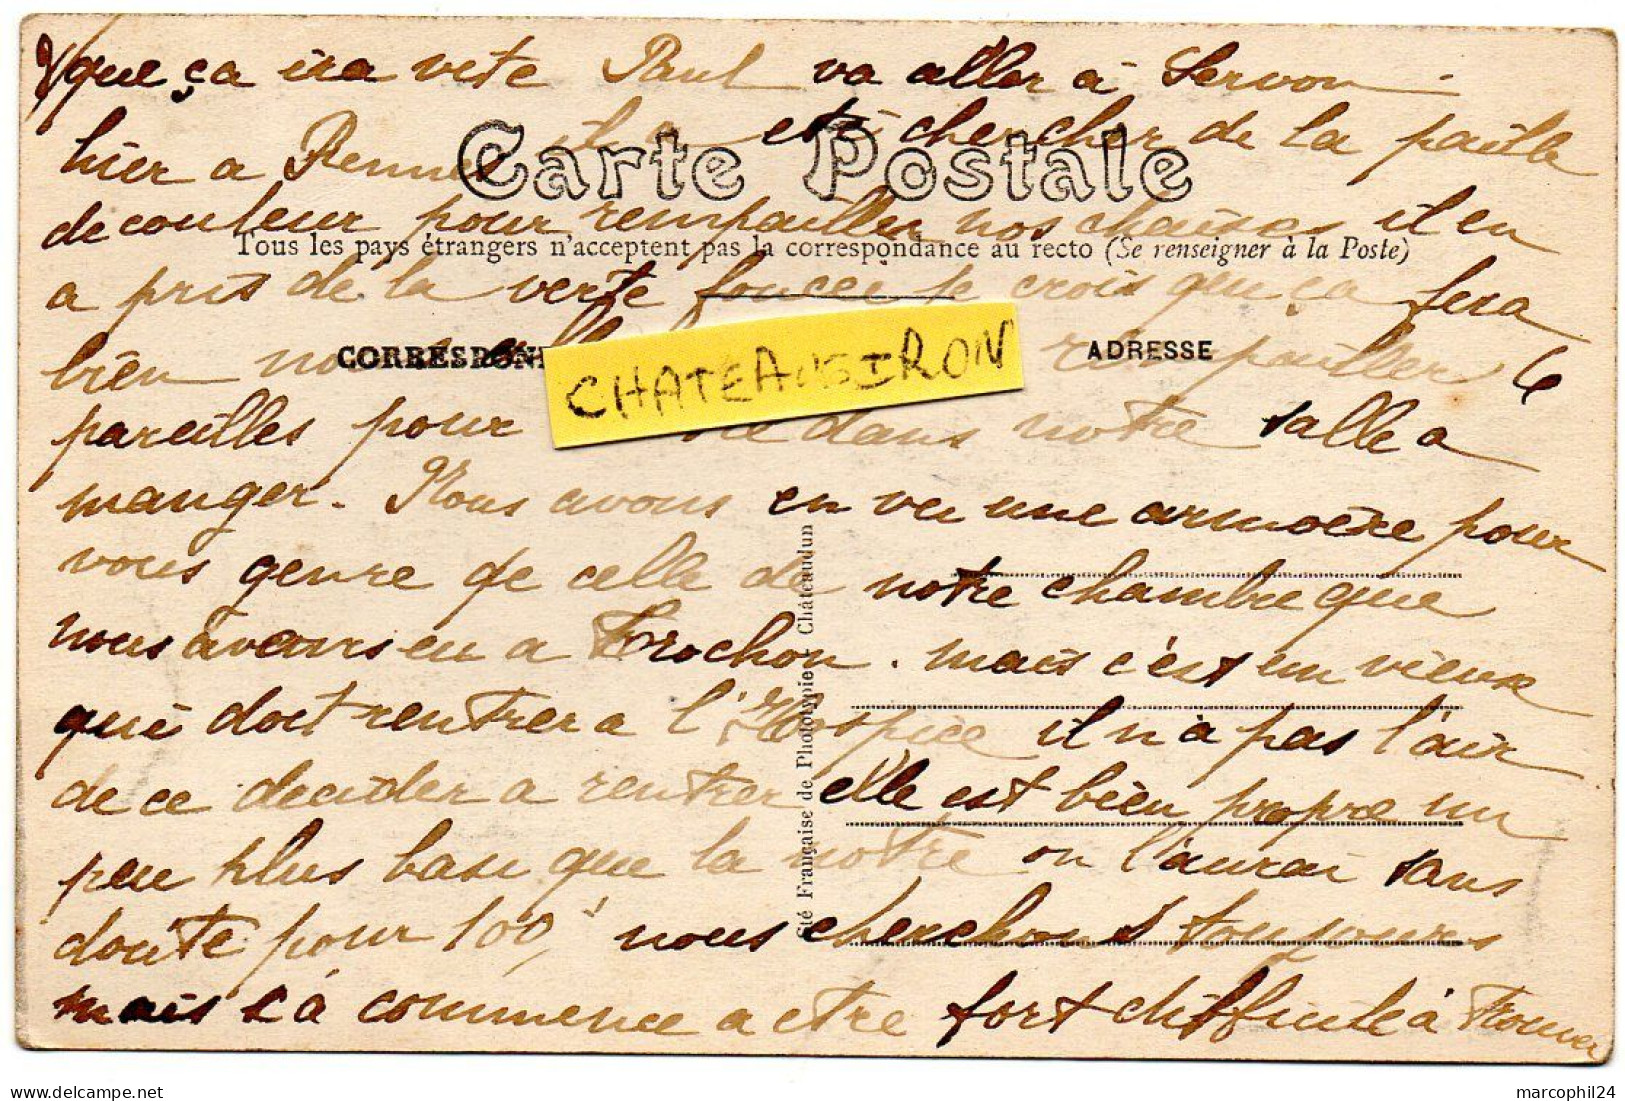 que ça ira vite Paul va aller à Servon
hier a Rennes il a etè chercher de la paille
Carte Postale
de couleur pour rempailler nos chaises il en
Tous les pays étrangers n'acceptent pas la correspondance au recto (Se renseigner à la Poste)
a pris de la verte foncée je crois que ça fera
CORRESPON
ADRESSE
bien nous rempailler 6
CHATEAUGIRON
pareilles pour dans notre salle a
manger. Nous avons en vu une armoire pour
vous genre de celle de notre chambre que
nous avons eu a Trochon. mais c'est un vieux
qui doit rentrer a l'Hospice il n'a pas l'air
de ce decider a rentrer elle est bien propre un
peu plus basse que la notre on l'aurai sans
doute pour 100, nous cherchons toujours
mais sa commence a etre fort difficile à trouver
té Française de Phototypie - Châteaudun
marcophil24